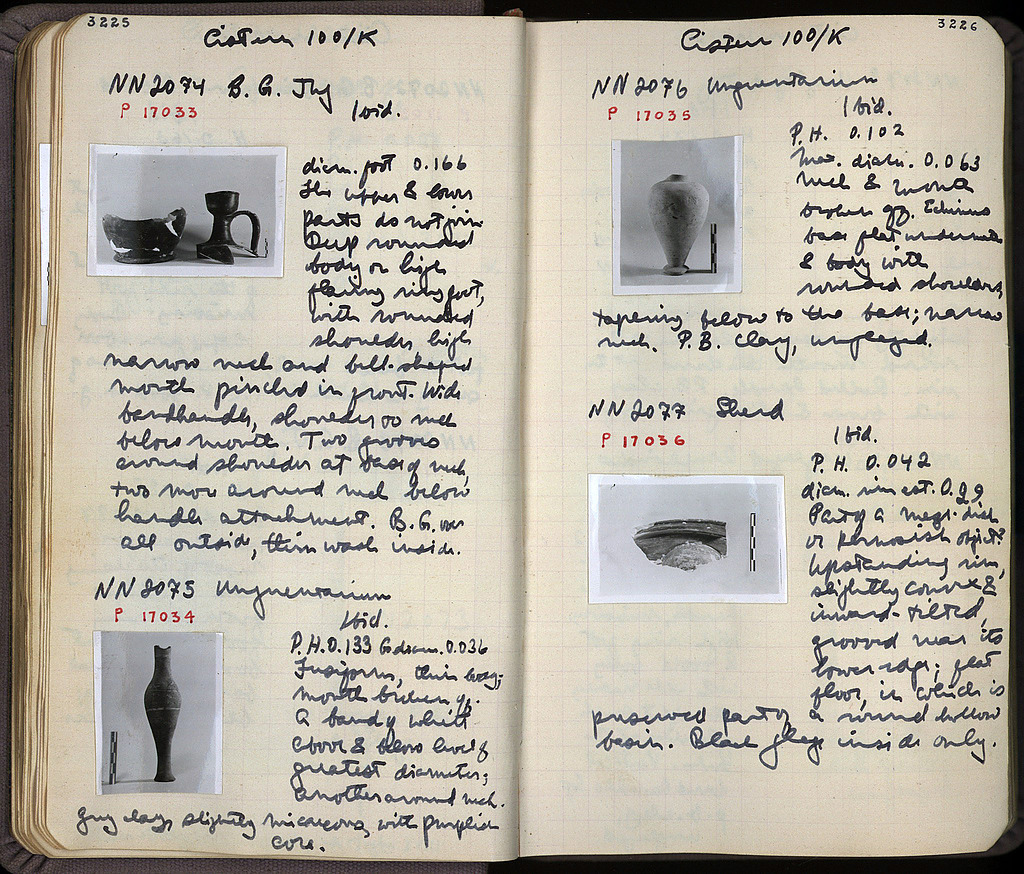 3225
Cistern 100/K
NN2074 B.G. Jug
P 17033
Ibid.
diam. foot 0.166
The upper & lower
parts do not join
Deep rounded
body on high
flaring ring foot,
with rounded
shoulder, high
narrow neck and bell-shaped
mouth pinched in front. Wide
bandhandle, shoulder to neck
below mouth. Two grooves
around shoulder at base of neck,
two more around neck below
handle attachment. B.G. over
all outside, thin wash inside.
NN2075 Unguentarium
P 17034
Ibid.
P.H. 0.133 G.diam. 0.036
Fusiform, thin body;
mouth broken off.
A band of white
above & below level of
greatest diameter;
another around neck.
Grey clay, slightly micaceous, with purplish
core.
3226
Cistern 100/K
NN2076 Unguentarium
P 17035
Ibid.
P.H. 0.102
Max. diam. 0.063
Neck & mouth
broken off. Echinus
base flat underneath
& body with
rounded shoulders,
tapering below to the base; narrow
neck. P.B. clay, unglazed.
NN2077 Sherd
P 17036
Ibid.
P.H. 0.042
diam. rim est. 0.29
Part of a meg. dish
or kernosish object?
Upstanding rim,
slightly convex &
inward-tilted,
grooved near its
lower edge; flat
floor, in which is
preserved part of a round hollow
basin. Black glaze inside only.